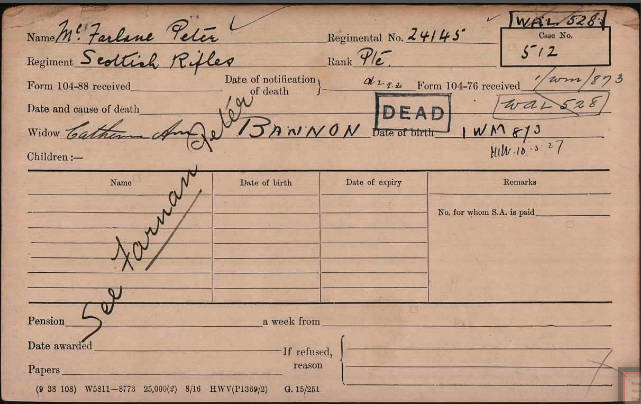 WAL 528.
Name Mc Farlane Peter Regimental No. 24145 Case No. 512
Regiment Scottish Rifles Rank Pte.
Form 104-88 received Date of notification of death Form 104-76 received 1/WM/873
Date and cause of death DEAD WAL 528
Widow Catherine Ann BANNON Date of birth 1WM 873
Children:—
Name Date of birth Date of expiry Remarks
No. for whom S.A. is paid
See Farnan Peter
Pension a week from
Date awarded If refused, reason
Papers
(9 38 108) W5811—8773 25,000(2) 8/16 HWV(P1369/2) G. 15/251